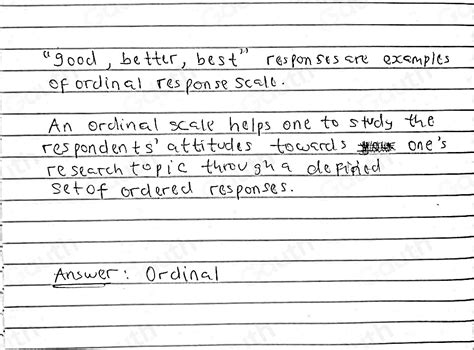 "good, better, best" responses are examples
of ordinal response scale.
An ordinal scale helps one to study the
respondents' attitudes towards one's
research topic through a defined
set of ordered responses.
Answer: Ordinal